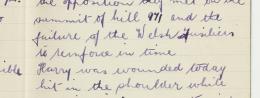 the opposition they met on the
summit of hill 971 and the
failure of the Welsh Fusiliers
to reinforce in time
Harry was wounded today
hit in the shoulder while